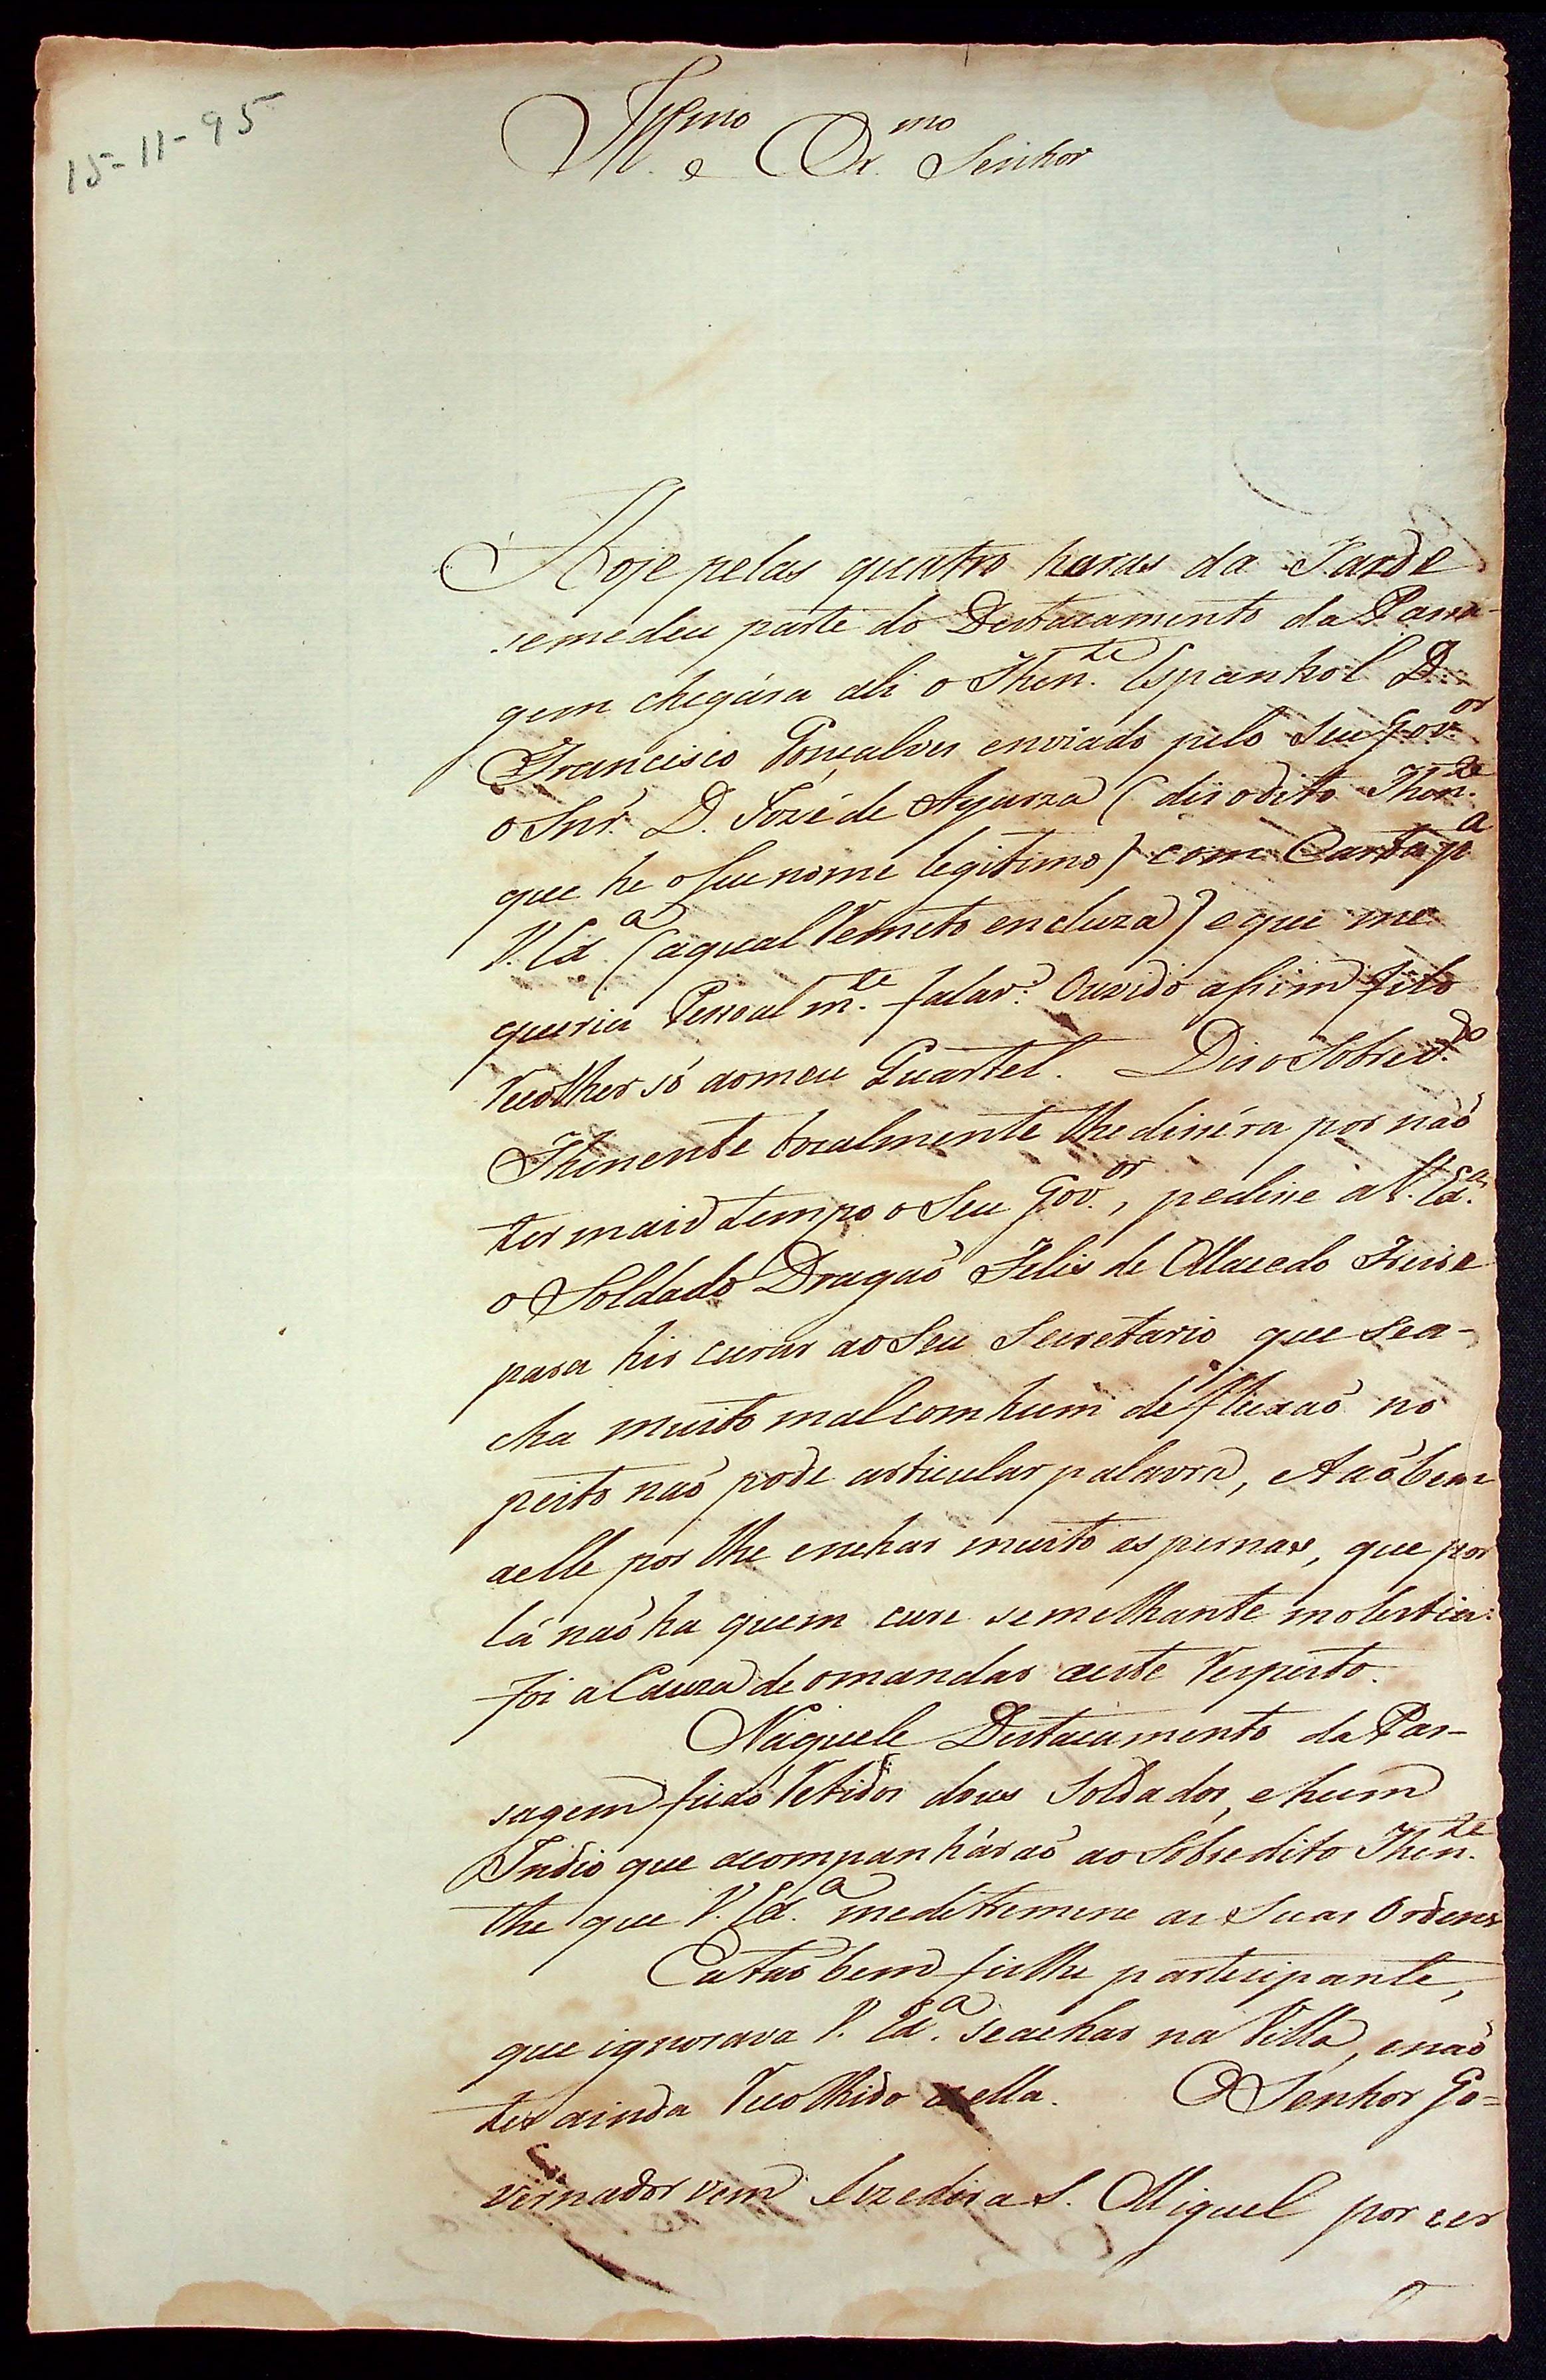 15-11-95
Ill.mo e Ex.mo Senhor
Hoje pelas quatro horas da Tarde
se me deu parte do Destacamento da Passa-
gem chegára ali o Then.te Espanhol D.
Francisco Gonçalves enviado pelo Seu Gov.or
o Snr. D. Jozé de Ayarza (dis o dito Then.te
que he o Seu nome legitimo) com Carta p.a
V. Ex.a (a qual Remeto encluza) e que me
queria Pessoalm.te falar. Ouvido assim filo
Recolher só ao meu Quartel. Dis o Sobred.do
Thenente vocalmente lhe dissera por naõ
ter mais tempo o Seu Gov.or, pedisse a V. Ex.a
o Soldado Dragaõ Felis de Macedo Freire
para hir curar ao Seu Secretario que Sea-
cha muito mal com hum defluxaõ no
peito naõ pode articular palavra, e taõ bem
a elle por lhe enchar muito as pernas, que por
lá naõ ha quem cure semelhante molestia:
foi a Cauza de o mandar a este Respeito.
Naquele Destacamento da Pas-
sagem ficaõ Retidos dous Soldados, e hum
Indio que acompanháraõ ao Sobredito Then.te
the que V. Ex.a me detremine as Suas Ordens
Eu taõ bem fislhe partecipante,
que ignorava V. Ex.a se achar na Villa, e naõ
ter ainda Recolhido a ella. O Senhor Go=
vernador vem dizedir a S. Miguel por ser